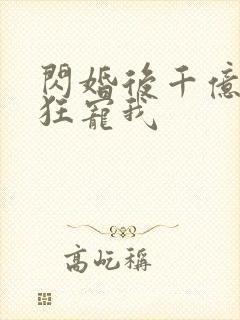 閃婚後千億
狂寵我
高屹稱